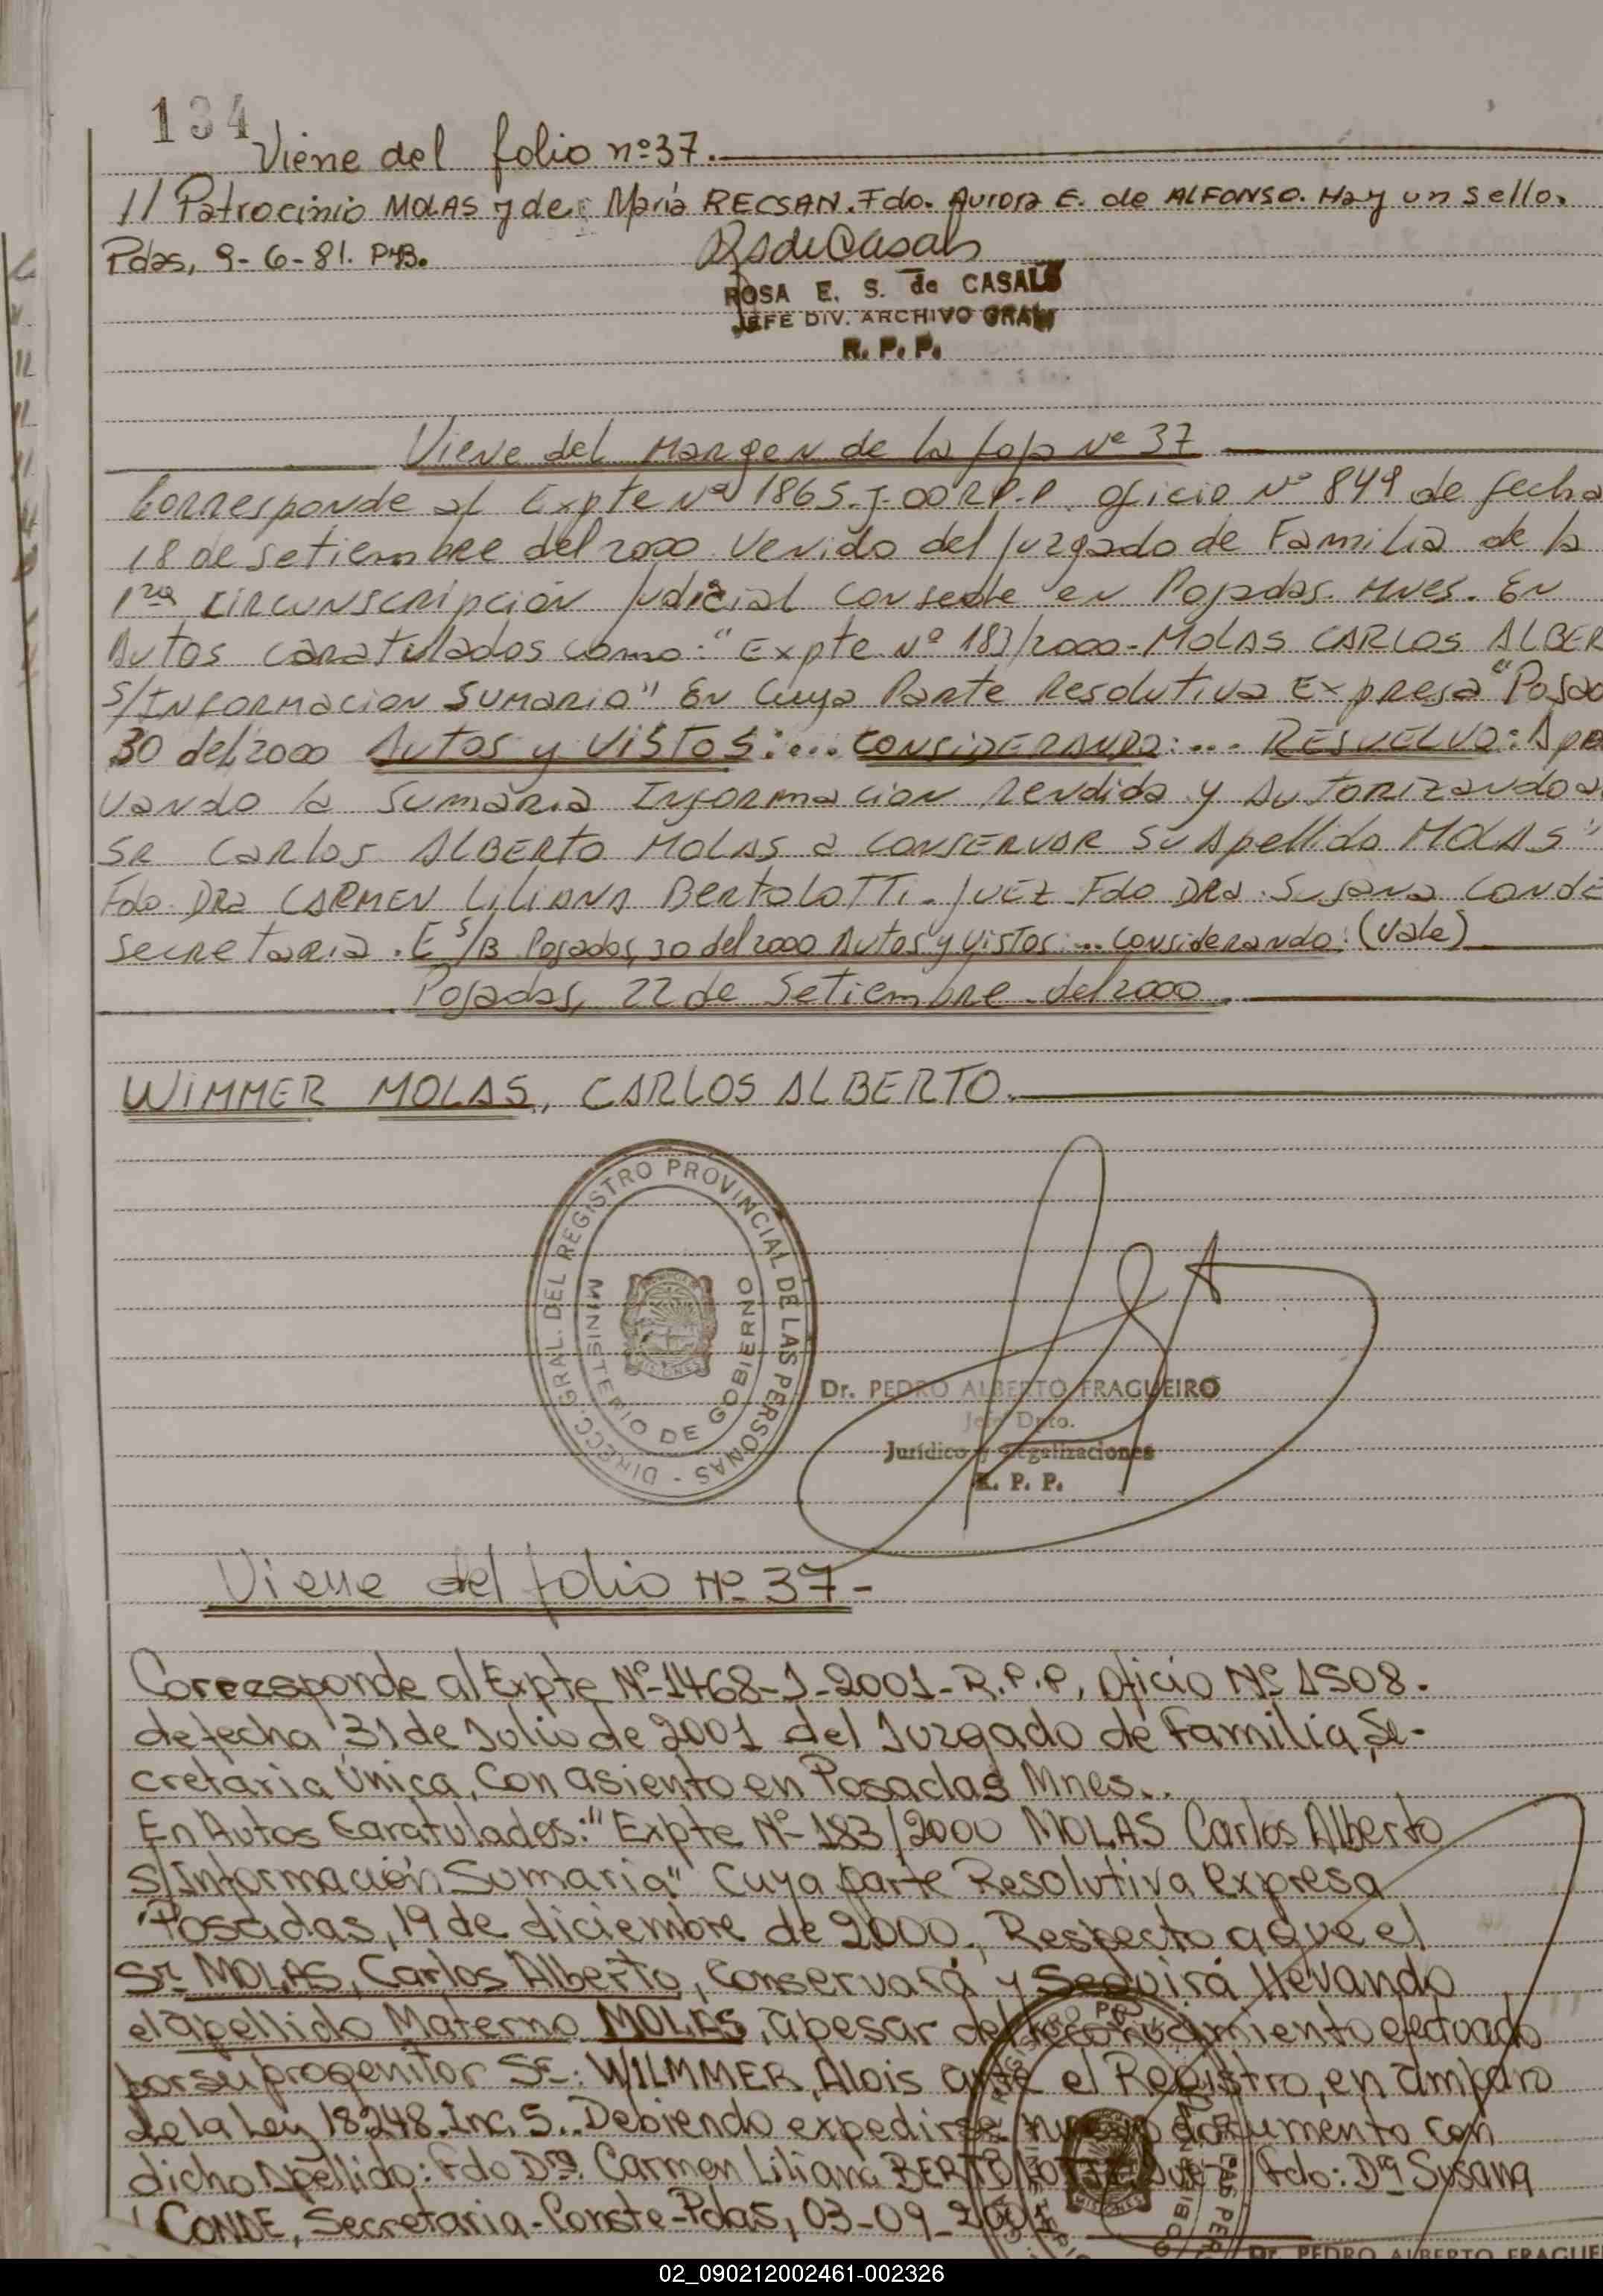 134
Viene del folio nº 37.
// Patrocinio MOLAS y de María RECSAN. Fdo. Aurora E. de ALFONSO. Hay un sello.
Pdas, 9-6-81.
ROSA E. S. de CASALS
JEFE DIV. ARCHIVO GRAL
R. P. P.
Viene del Margen de la foja Nº 37
Corresponde al Expte Nº 1865-J-00 R.P.P. oficio Nº 849 de fecha
18 de Setiembre del 2000 Venido del Juzgado de Familia de la
1ra CIRCUNSCRIPCIÓN Judicial con sede en Posadas. Mnes. En
Autos caratulados como: "Expte Nº 183/2000-MOLAS CARLOS ALBER
S/INFORMACION SUMARIO" En Cuya Parte Resolutiva Expresa "Posad
30 del 2000 Autos y VISTOS:... CONSIDERANDO:... RESUELVO: Apro
vando la Sumaria Informacion rendida y AUTORIZANDO a
SR CARLOS ALBERTO MOLAS a CONSERVAR su Apellido MOLAS"
Fdo. DRa CARMEN LILIANA BERTOLOTTI. JUEZ Fdo DRa. Susana CONDE
Secretaria. E S/B Posadas, 30 del 2000 Autos y Vistos:... Considerando: (Vale)
Posadas, 22 de Setiembre del 2000.
WIMMER MOLAS, CARLOS ALBERTO.
DIRECC. GRAL. DEL REGISTRO PROVINCIAL DE LAS PERSONAS -
MINISTERIO DE GOBIERNO
Dr. PEDRO ALBERTO FRAGUEIRO
Jefe Dpto.
Jurídico y Legalizaciones
R. P. P.
Viene del folio Nº 37-
Corresponde al Expte Nº 1468-J-2001-R.P.P, Oficio Nº 1508.
de fecha 31 de Julio de 2001 del Juzgado de Familia, Se-
cretaria Única, Con asiento en Posadas Mnes..
En Autos Caratulados: "Expte Nº 183/2000 MOLAS Carlos Alberto
S/Información Sumaria" Cuya parte Resolutiva expresa
"Posadas, 19 de diciembre de 2000., Respecto a que el
Sr. MOLAS, Carlos Alberto, Conservará y Seguirá llevando
el apellido Materno MOLAS, apesar del reconocimiento efectuado
por su progenitor Sr: WILMMER, Alois ante el Registro, en amparo
de la Ley 18.248. Inc. 5.. Debiendo expedirse nuevo documento con
dicho Apellido: Fdo Dra. Carmen Liliana BERTOLOTTI Juez Fdo: Dra Susana
CONDE, Secretaria-Conste-Pdas, 03-09-2001
Dr. PEDRO ALBERTO FRAGUE
02_090212002461-002326